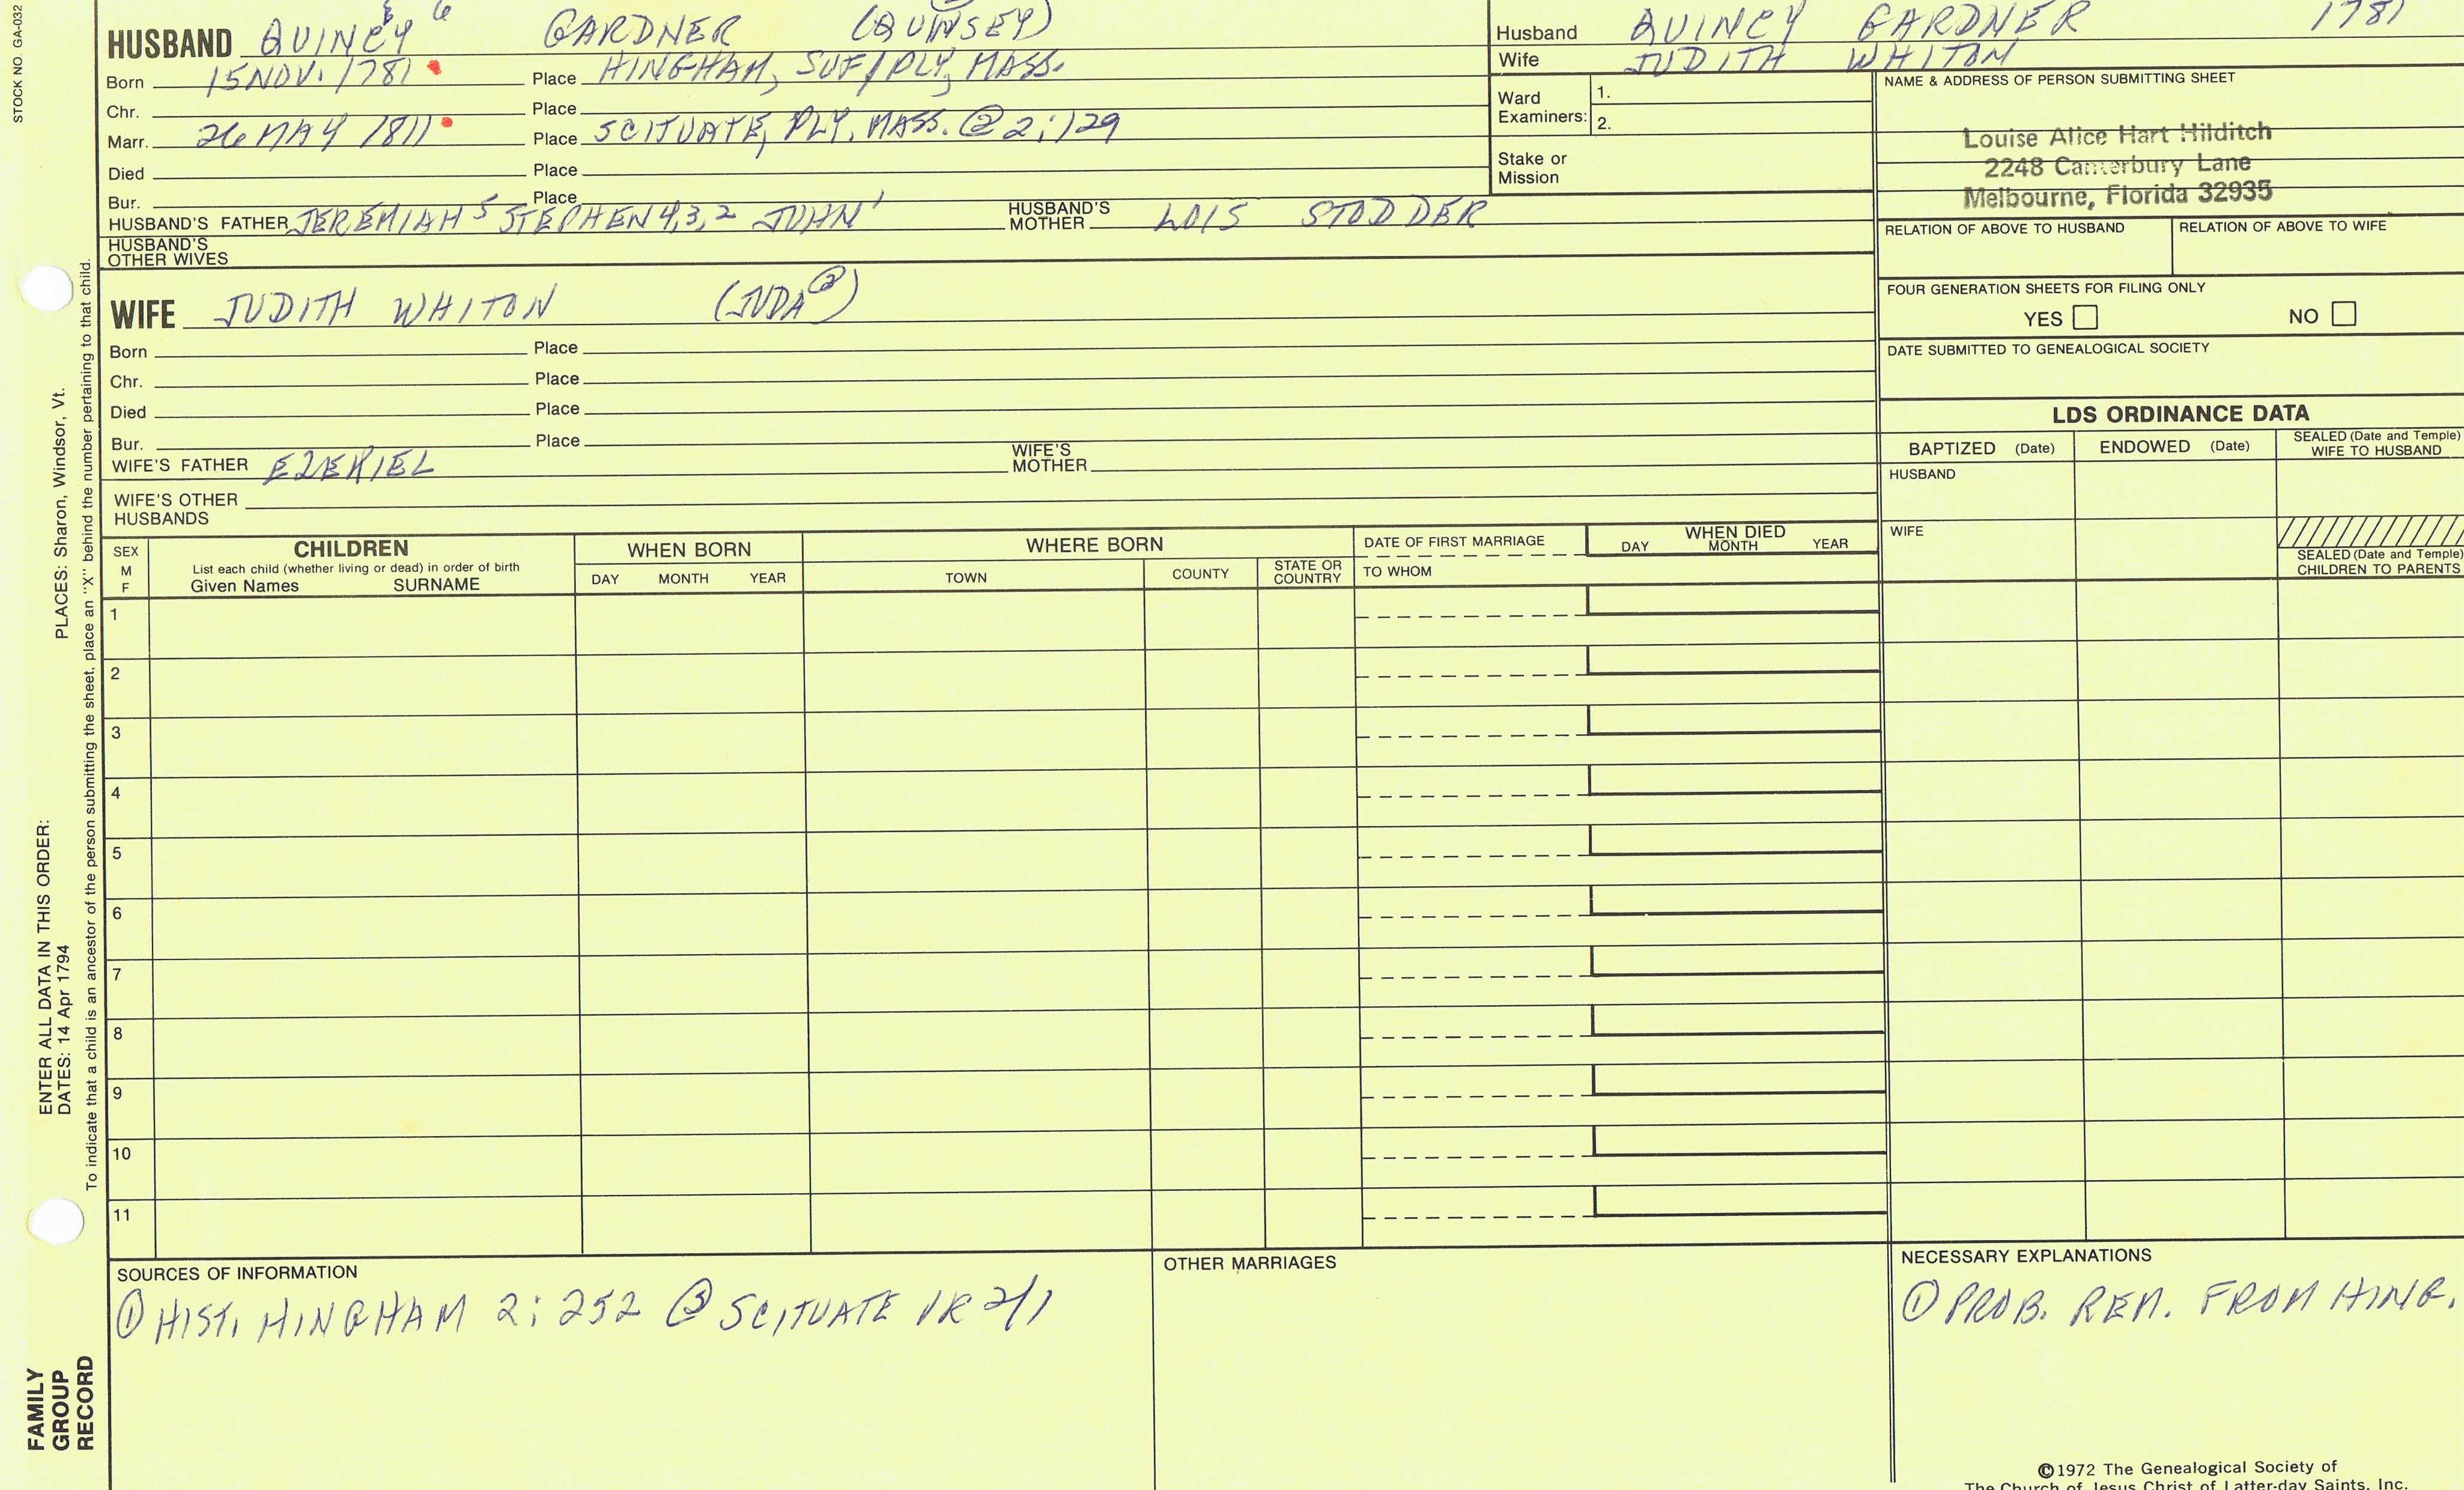 STOCK NO. GA-032
HUSBAND QUINCY 6 GARDNER (QUINSEY)
Born 15 NOV. 1781 Place HINGHAM, SUF/PLY, MASS.
Chr. Place
Marr. 26 MAY 1811 Place SCITUATE, PLY. MASS. @ 2:129
Died Place
Bur. Place
HUSBAND'S FATHER JEREMIAH 5 STEPHEN 4,3,2 JOHN 1 HUSBAND'S MOTHER LOIS STODDER
HUSBAND'S OTHER WIVES
Husband QUINCY GARDNER 1781
Wife JUDITH WHITON
Ward Examiners: 1.
2.
Stake or Mission
NAME & ADDRESS OF PERSON SUBMITTING SHEET
Louise Alice Hart Hilditch
2248 Canterbury Lane
Melbourne, Florida 32935
RELATION OF ABOVE TO HUSBAND RELATION OF ABOVE TO WIFE
FOUR GENERATION SHEETS FOR FILING ONLY
YES NO
DATE SUBMITTED TO GENEALOGICAL SOCIETY
WIFE JUDITH WHITON (JUDA ②)
Born Place
Chr. Place
Died Place
Bur. Place
WIFE'S FATHER EZEKIEL WIFE'S MOTHER
WIFE'S OTHER HUSBANDS
LDS ORDINANCE DATA
BAPTIZED (Date) ENDOWED (Date) SEALED (Date and Temple) WIFE TO HUSBAND
HUSBAND
WIFE
SEALED (Date and Temple) CHILDREN TO PARENTS
SEX M F
CHILDREN
List each child (whether living or dead) in order of birth
Given Names SURNAME
WHEN BORN
DAY MONTH YEAR
WHERE BORN
TOWN COUNTY STATE OR COUNTRY
DATE OF FIRST MARRIAGE
TO WHOM
WHEN DIED
DAY MONTH YEAR
1
2
3
4
5
6
7
8
9
10
11
SOURCES OF INFORMATION
① HIST. HINGHAM 2:252 ② SCITUATE VR 2/1
OTHER MARRIAGES
NECESSARY EXPLANATIONS
① PROB. REM. FROM HING.
©1972 The Genealogical Society of
The Church of Jesus Christ of Latter-day Saints, Inc.
ENTER ALL DATA IN THIS ORDER:
DATES: 14 Apr 1794 PLACES: Sharon, Windsor, Vt.
To indicate that a child is an ancestor of the person submitting the sheet, place an "X" behind the number pertaining to that child.
FAMILY
GROUP
RECORD